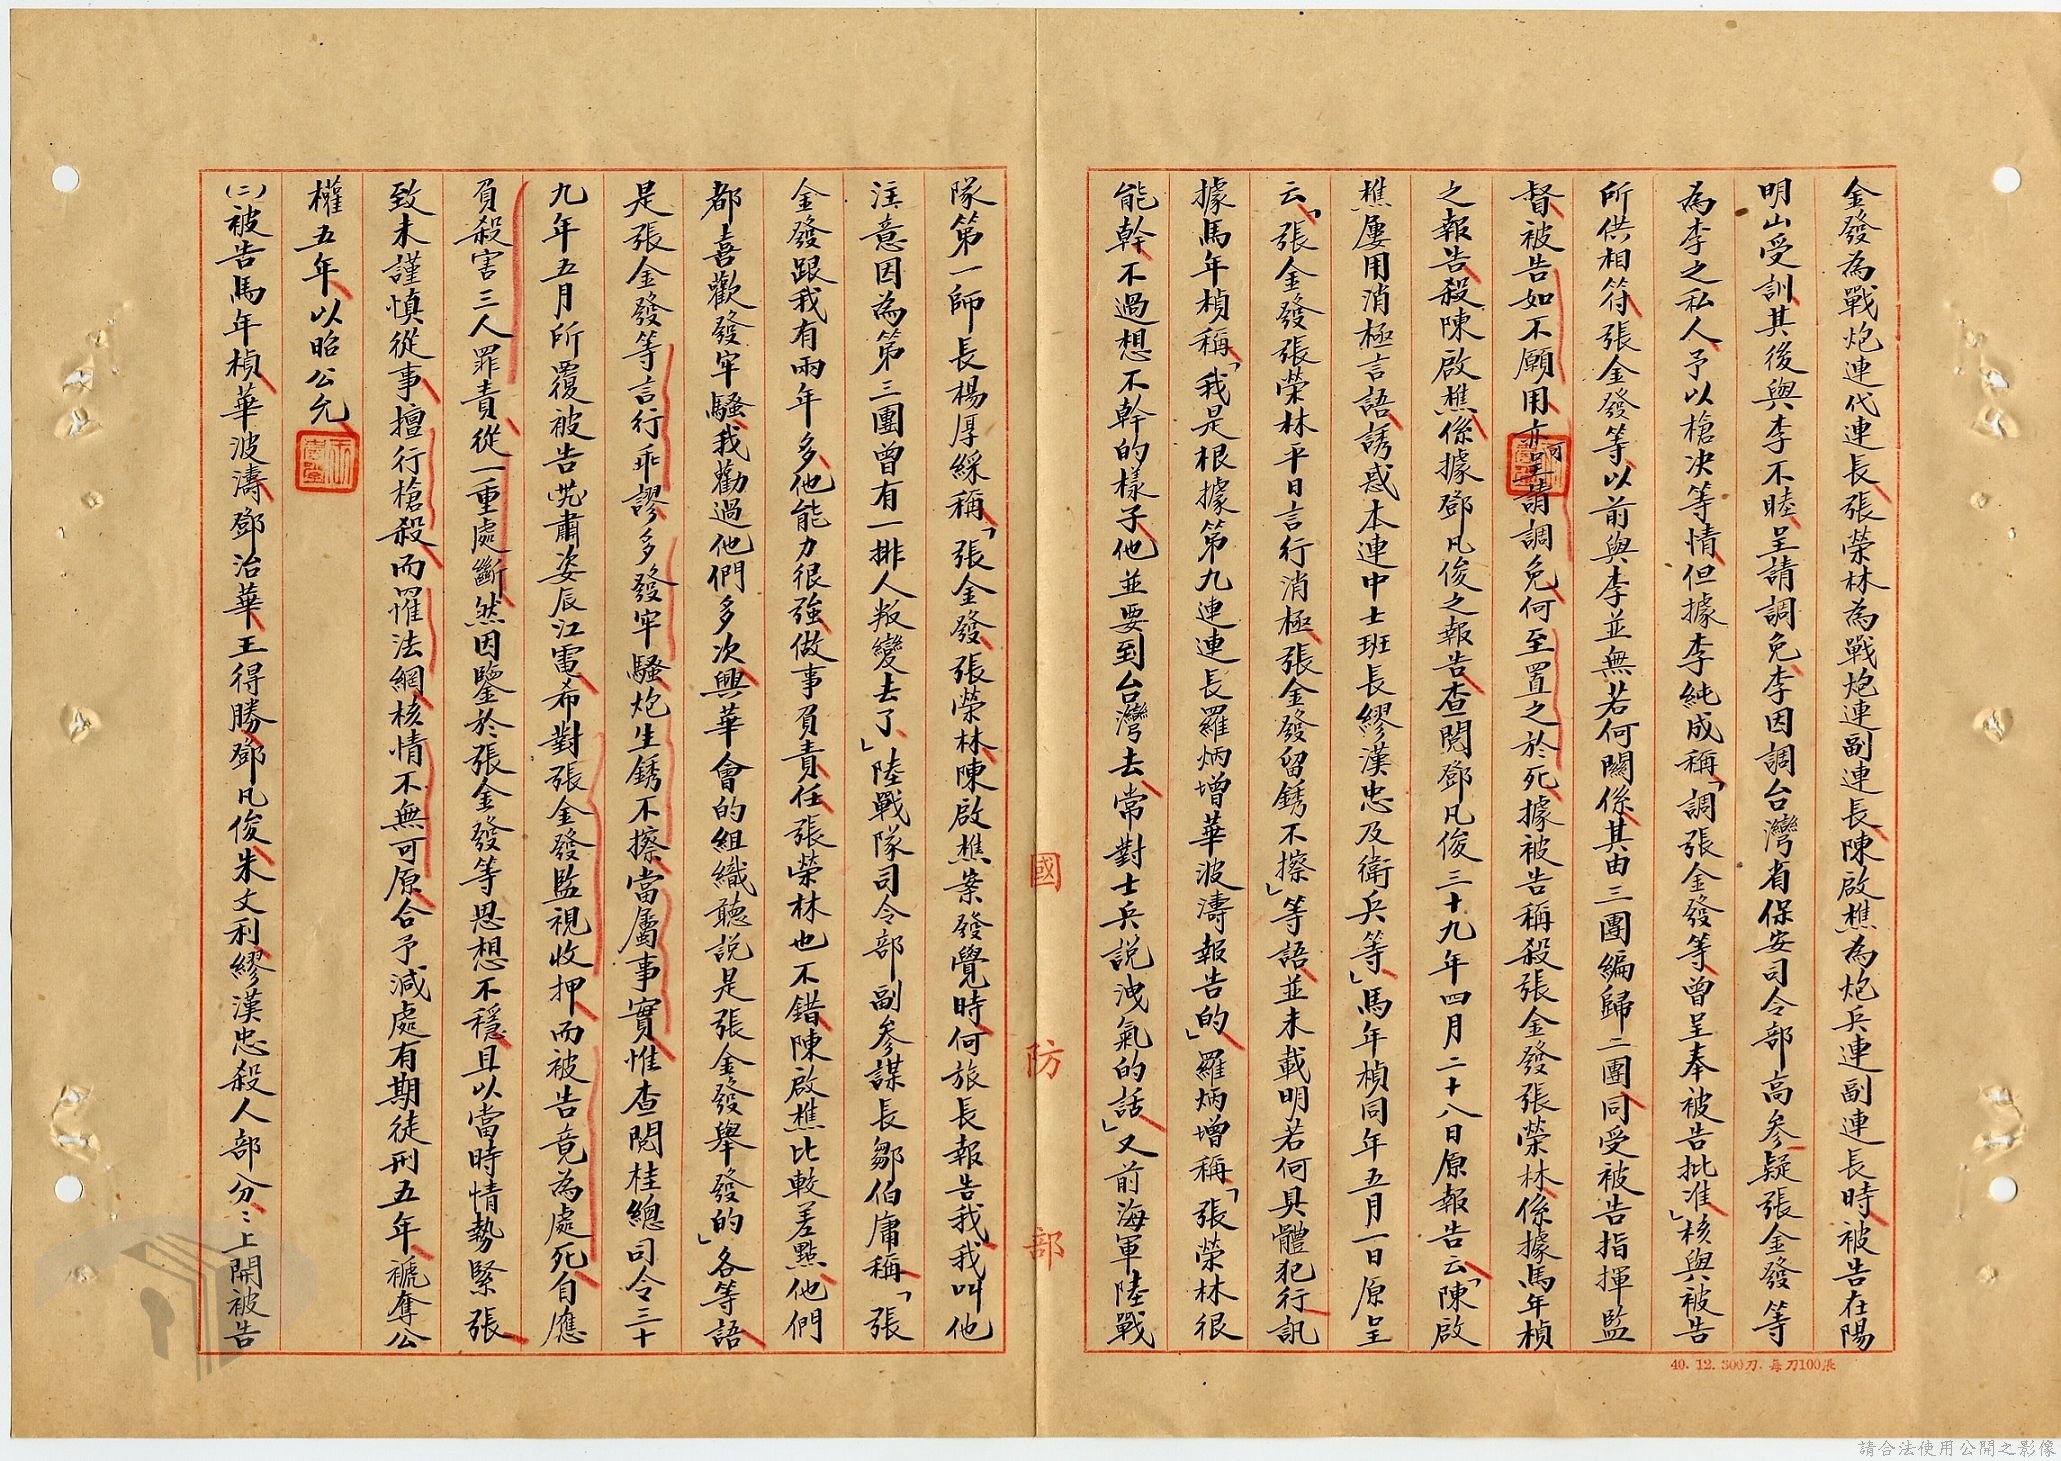 金發為戰炮連代連長張榮林為戰炮連副連長陳啟樵為炮兵連副連長時被告在陽
明山受訓其後與李不睦呈請調免李因調台灣省保安司令部高參疑張金發等
為李之私人予以槍决等情但據李純成稱「調張金發等曾呈奉被告批准」核與被告
所供相符張金發等以前與李並無若何關係其由三團編歸二團同受被告指揮監
督被告如不願用亦可呈請調免何至置之於死據被告稱殺張金發張榮林係據馬年楨
之報告殺陳啟樵係據鄧凡俊之報告查閱鄧凡俊三十九年四月二十八日原報告云「陳啟
樵屢用消極言語誘惑本連中士班長繆漢忠及衛兵等」馬年楨同年五月一日原呈
云「張金發張榮林平日言行消極張金發留銹不擦」等語並未載明若何具體犯行訊
據馬年楨稱「我是根據第九連連長羅炳增華波濤報告的」羅炳增稱「張榮林很
能幹不過想不幹的樣子他並要到台灣去常對士兵説洩氣的話」又前海軍陸戰
隊第一師長楊厚綵稱「張金發張榮林陳啟樵案發覺時何旅長報告我我叫他
注意因為第三團曾有一排人叛變去了」陸戰隊司令部副參謀長鄒伯庸稱「張
金發跟我有兩年多他能力很強做事負責任張榮林也不錯陳啟樵比較差點他們
都喜歡發牢騷我勸過他們多次興華會的組織聽説是張金發舉發的」各等語
是張金發等言行乖謬多發牢騷炮生銹不擦當屬事實惟查閱桂總司令三十
九年五月所覆被告巹肅姿辰江電希對張金發監視收押而被告竟為處死自應
負殺害三人罪責從一重處斷然因鑒於張金發等思想不穩且以當時情勢緊張
致未謹慎從事擅行槍殺而罹法網核情不無可原合予減處有期徒刑五年褫奪公
權五年以昭公允
(二)被告馬年楨華波濤鄧治華王得勝鄧凡俊朱文利繆漢忠殺人部分:上開被告
國防部
40. 12. 300刀. 每刀100張
請合法使用公開之影像